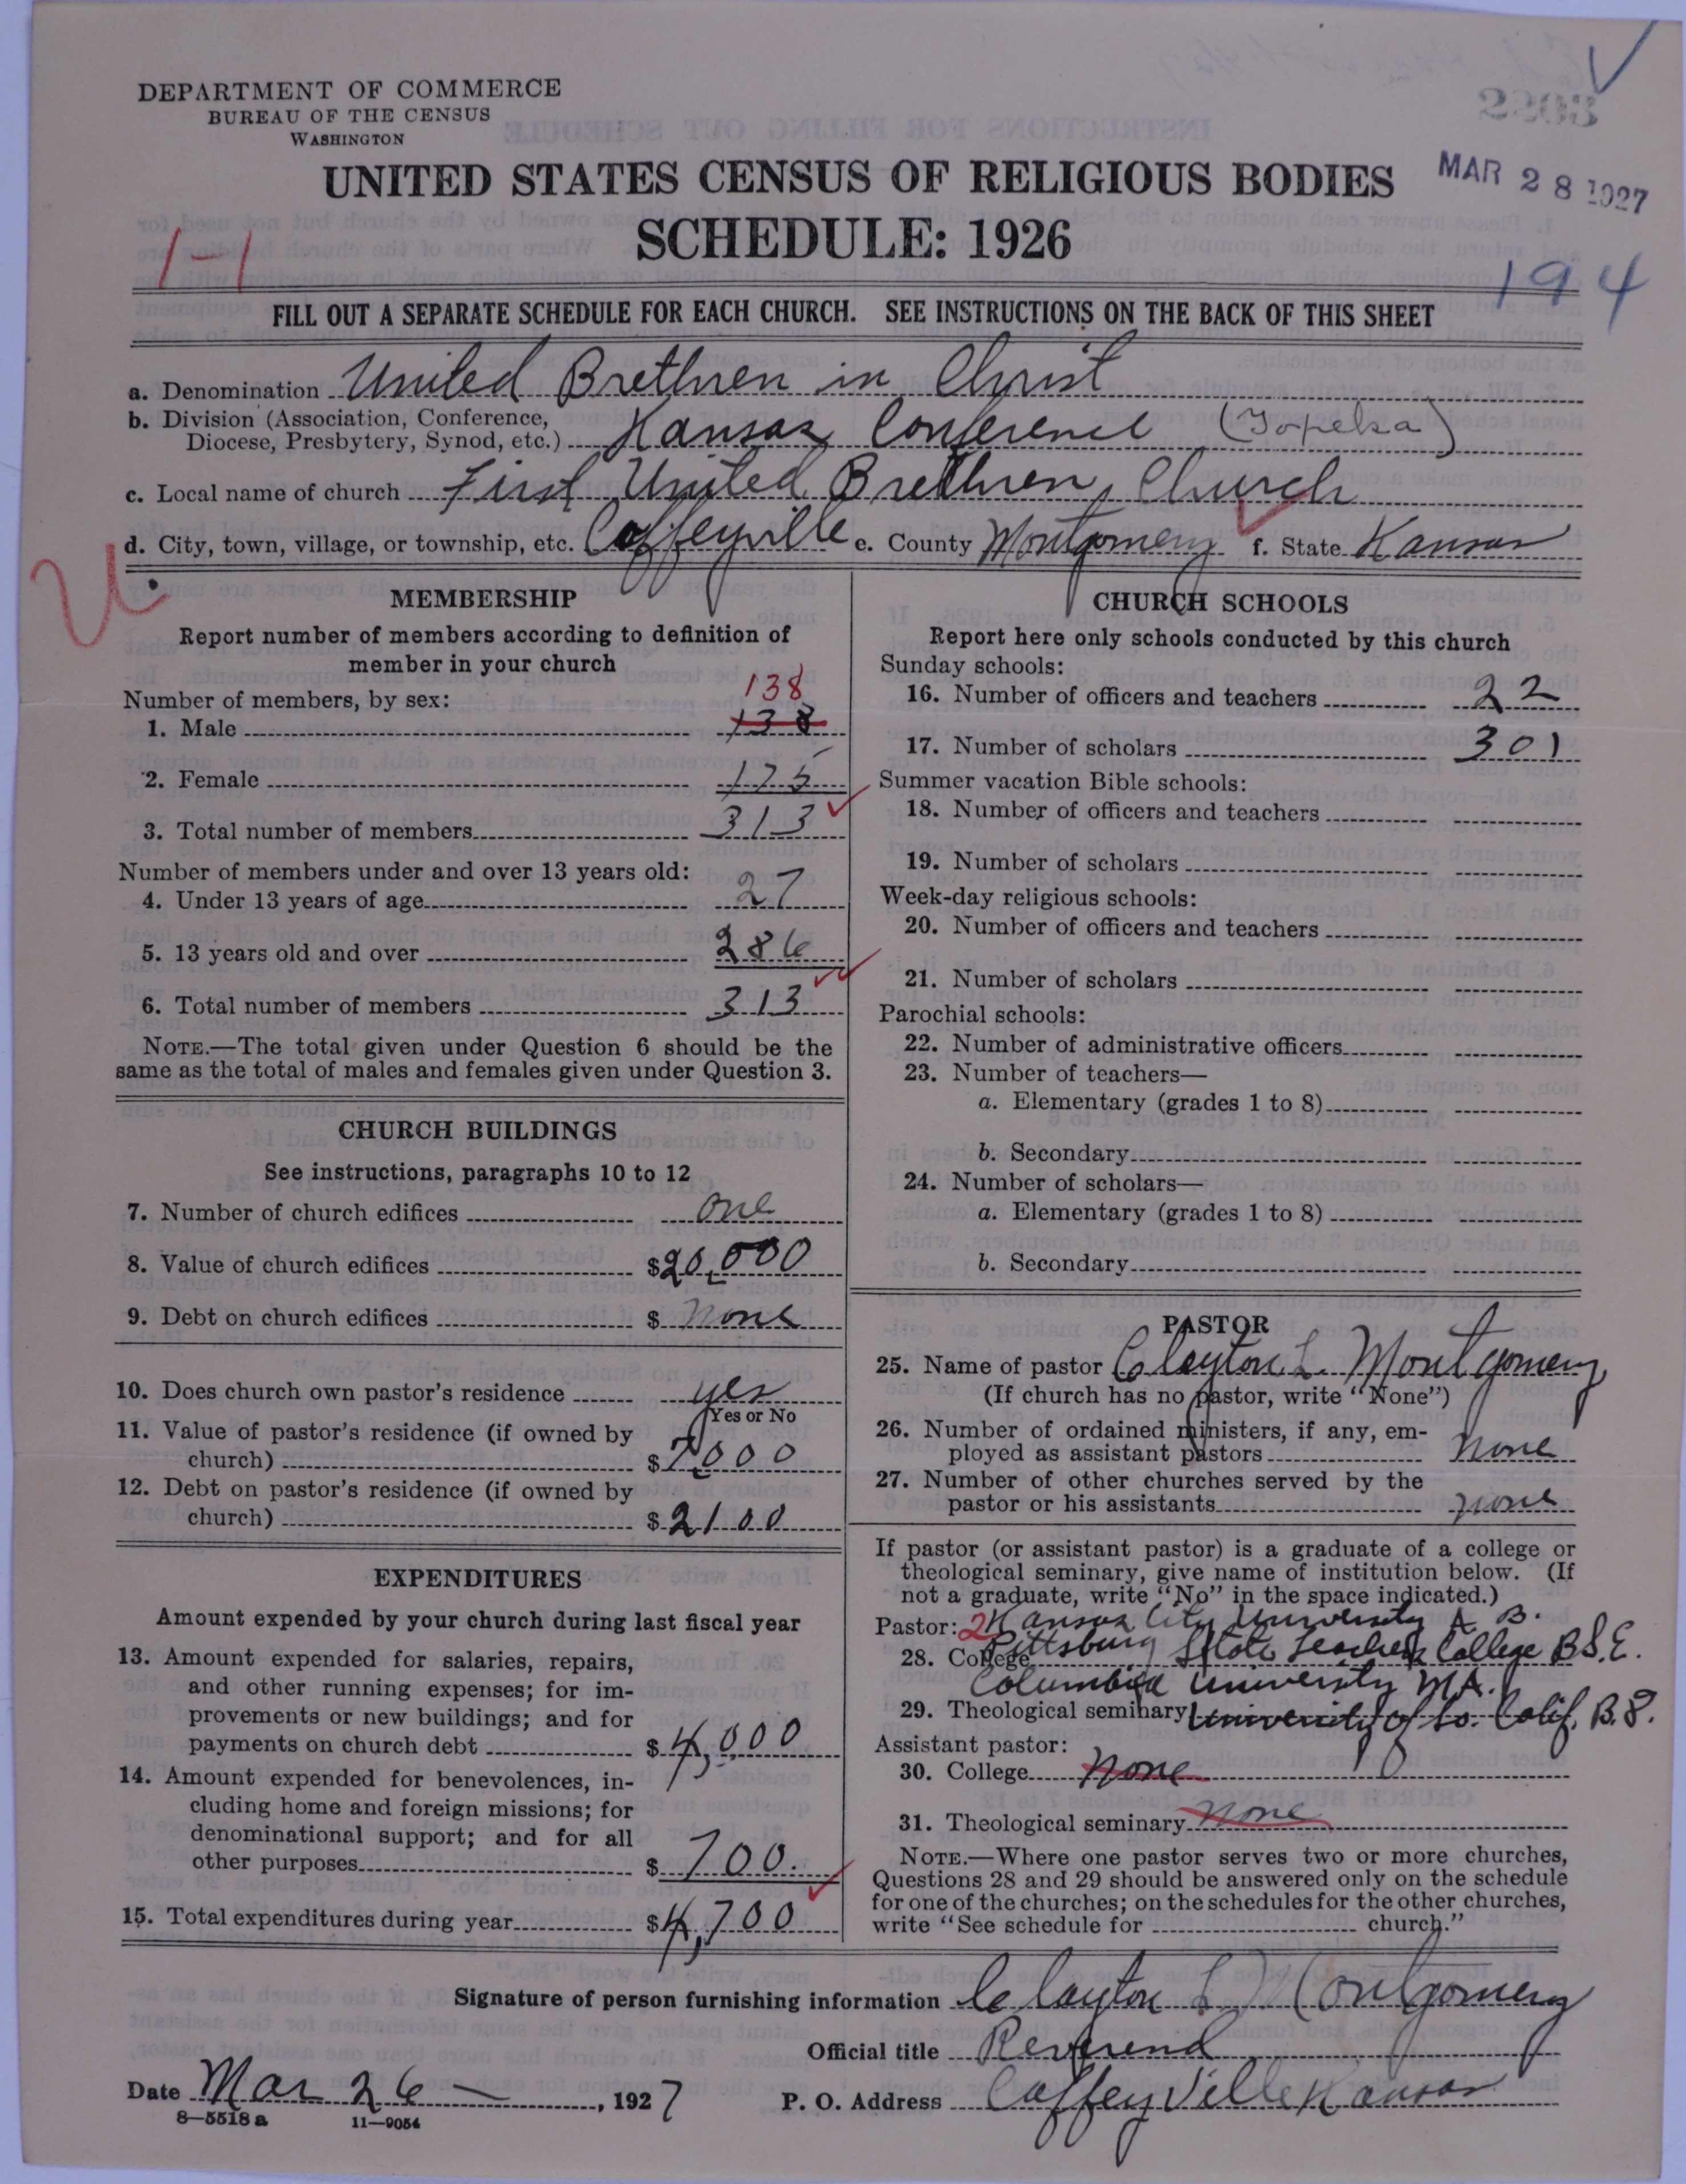 DEPARTMENT OF COMMERCE
BUREAU OF THE CENSUS
WASHINGTON
UNITED STATES CENSUS OF RELIGIOUS BODIES
MAR 28 1927
SCHEDULE: 1926
1-1
194
FILL OUT A SEPARATE SCHEDULE FOR EACH CHURCH. SEE INSTRUCTIONS ON THE BACK OF THIS SHEET
a. Denomination United Brethren in Christ
b. Division (Association, Conference,
Diocese, Presbytery, Synod, etc.) Kansas Conference (Topeka)
c. Local name of church First United Brethren Church
d. City, town, village, or township, etc. Coffeyville e. County Montgomery f. State Kansas
U.
MEMBERSHIP
Report number of members according to definition of
member in your church
138
Number of members, by sex:
1. Male 138
2. Female 175
3. Total number of members 313
Number of members under and over 13 years old:
4. Under 13 years of age 27
5. 13 years old and over 286
6. Total number of members 313
NOTE.—The total given under Question 6 should be the
same as the total of males and females given under Question 3.
CHURCH BUILDINGS
See instructions, paragraphs 10 to 12
7. Number of church edifices one
8. Value of church edifices $20,000
9. Debt on church edifices $ None
10. Does church own pastor's residence yes
Yes or No
11. Value of pastor's residence (if owned by
church) $7000
12. Debt on pastor's residence (if owned by
church) $2100
EXPENDITURES
Amount expended by your church during last fiscal year
13. Amount expended for salaries, repairs,
and other running expenses; for im-
provements or new buildings; and for
payments on church debt $4,000
14. Amount expended for benevolences, in-
cluding home and foreign missions; for
denominational support; and for all
other purposes $700.
15. Total expenditures during year $4,700
CHURCH SCHOOLS
Report here only schools conducted by this church
Sunday schools:
16. Number of officers and teachers 22
17. Number of scholars 301
Summer vacation Bible schools:
18. Number of officers and teachers
19. Number of scholars
Week-day religious schools:
20. Number of officers and teachers
21. Number of scholars
Parochial schools:
22. Number of administrative officers
23. Number of teachers—
a. Elementary (grades 1 to 8)
b. Secondary
24. Number of scholars—
a. Elementary (grades 1 to 8)
b. Secondary
PASTOR
25. Name of pastor Clayton L. Montgomery
(If church has no pastor, write "None")
26. Number of ordained ministers, if any, em-
ployed as assistant pastors none
27. Number of other churches served by the
pastor or his assistants none
If pastor (or assistant pastor) is a graduate of a college or
theological seminary, give name of institution below. (If
not a graduate, write "No" in the space indicated.)
Pastor: 2 Kansas City University A. B.
28. College Pittsburg State Teachers College B.S.E.
Columbia University M.A.
29. Theological seminary University of So. Calif. B.
Assistant pastor:
30. College None
31. Theological seminary None
NOTE.—Where one pastor serves two or more churches,
Questions 28 and 29 should be answered only on the schedule
for one of the churches; on the schedules for the other churches,
write "See schedule for church."
Signature of person furnishing information Clayton L Montgomery
Official title Reverend
Date Mar 26 —, 1927 P. O. Address Coffeyville Kansas
8—5518 a 11—9054